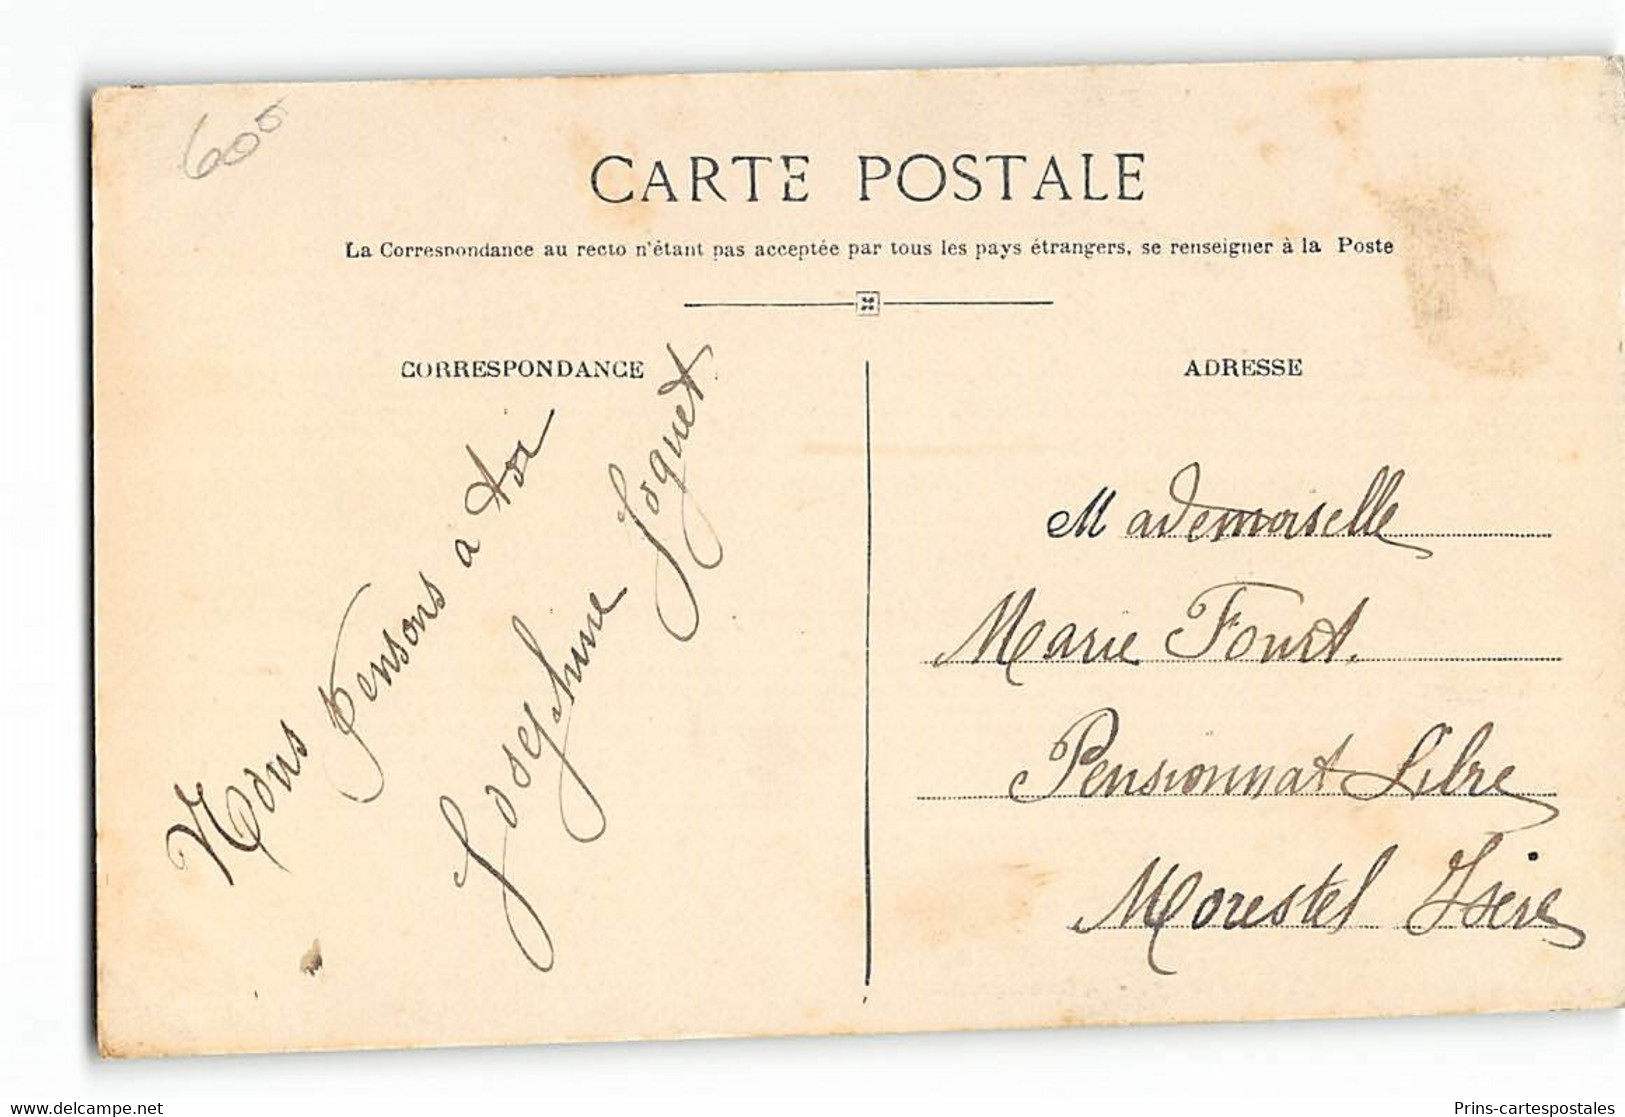 600
CARTE POSTALE
La Correspondance au recto n'étant pas acceptée par tous les pays étrangers, se renseigner à la Poste
CORRESPONDANCE
Nous pensons a toi
Josephine Joquet
ADRESSE
Mademoiselle
Marie Fourt.
Pensionnat Libre
Morestel Isère
www.delcampe.net
Prins-cartespostales